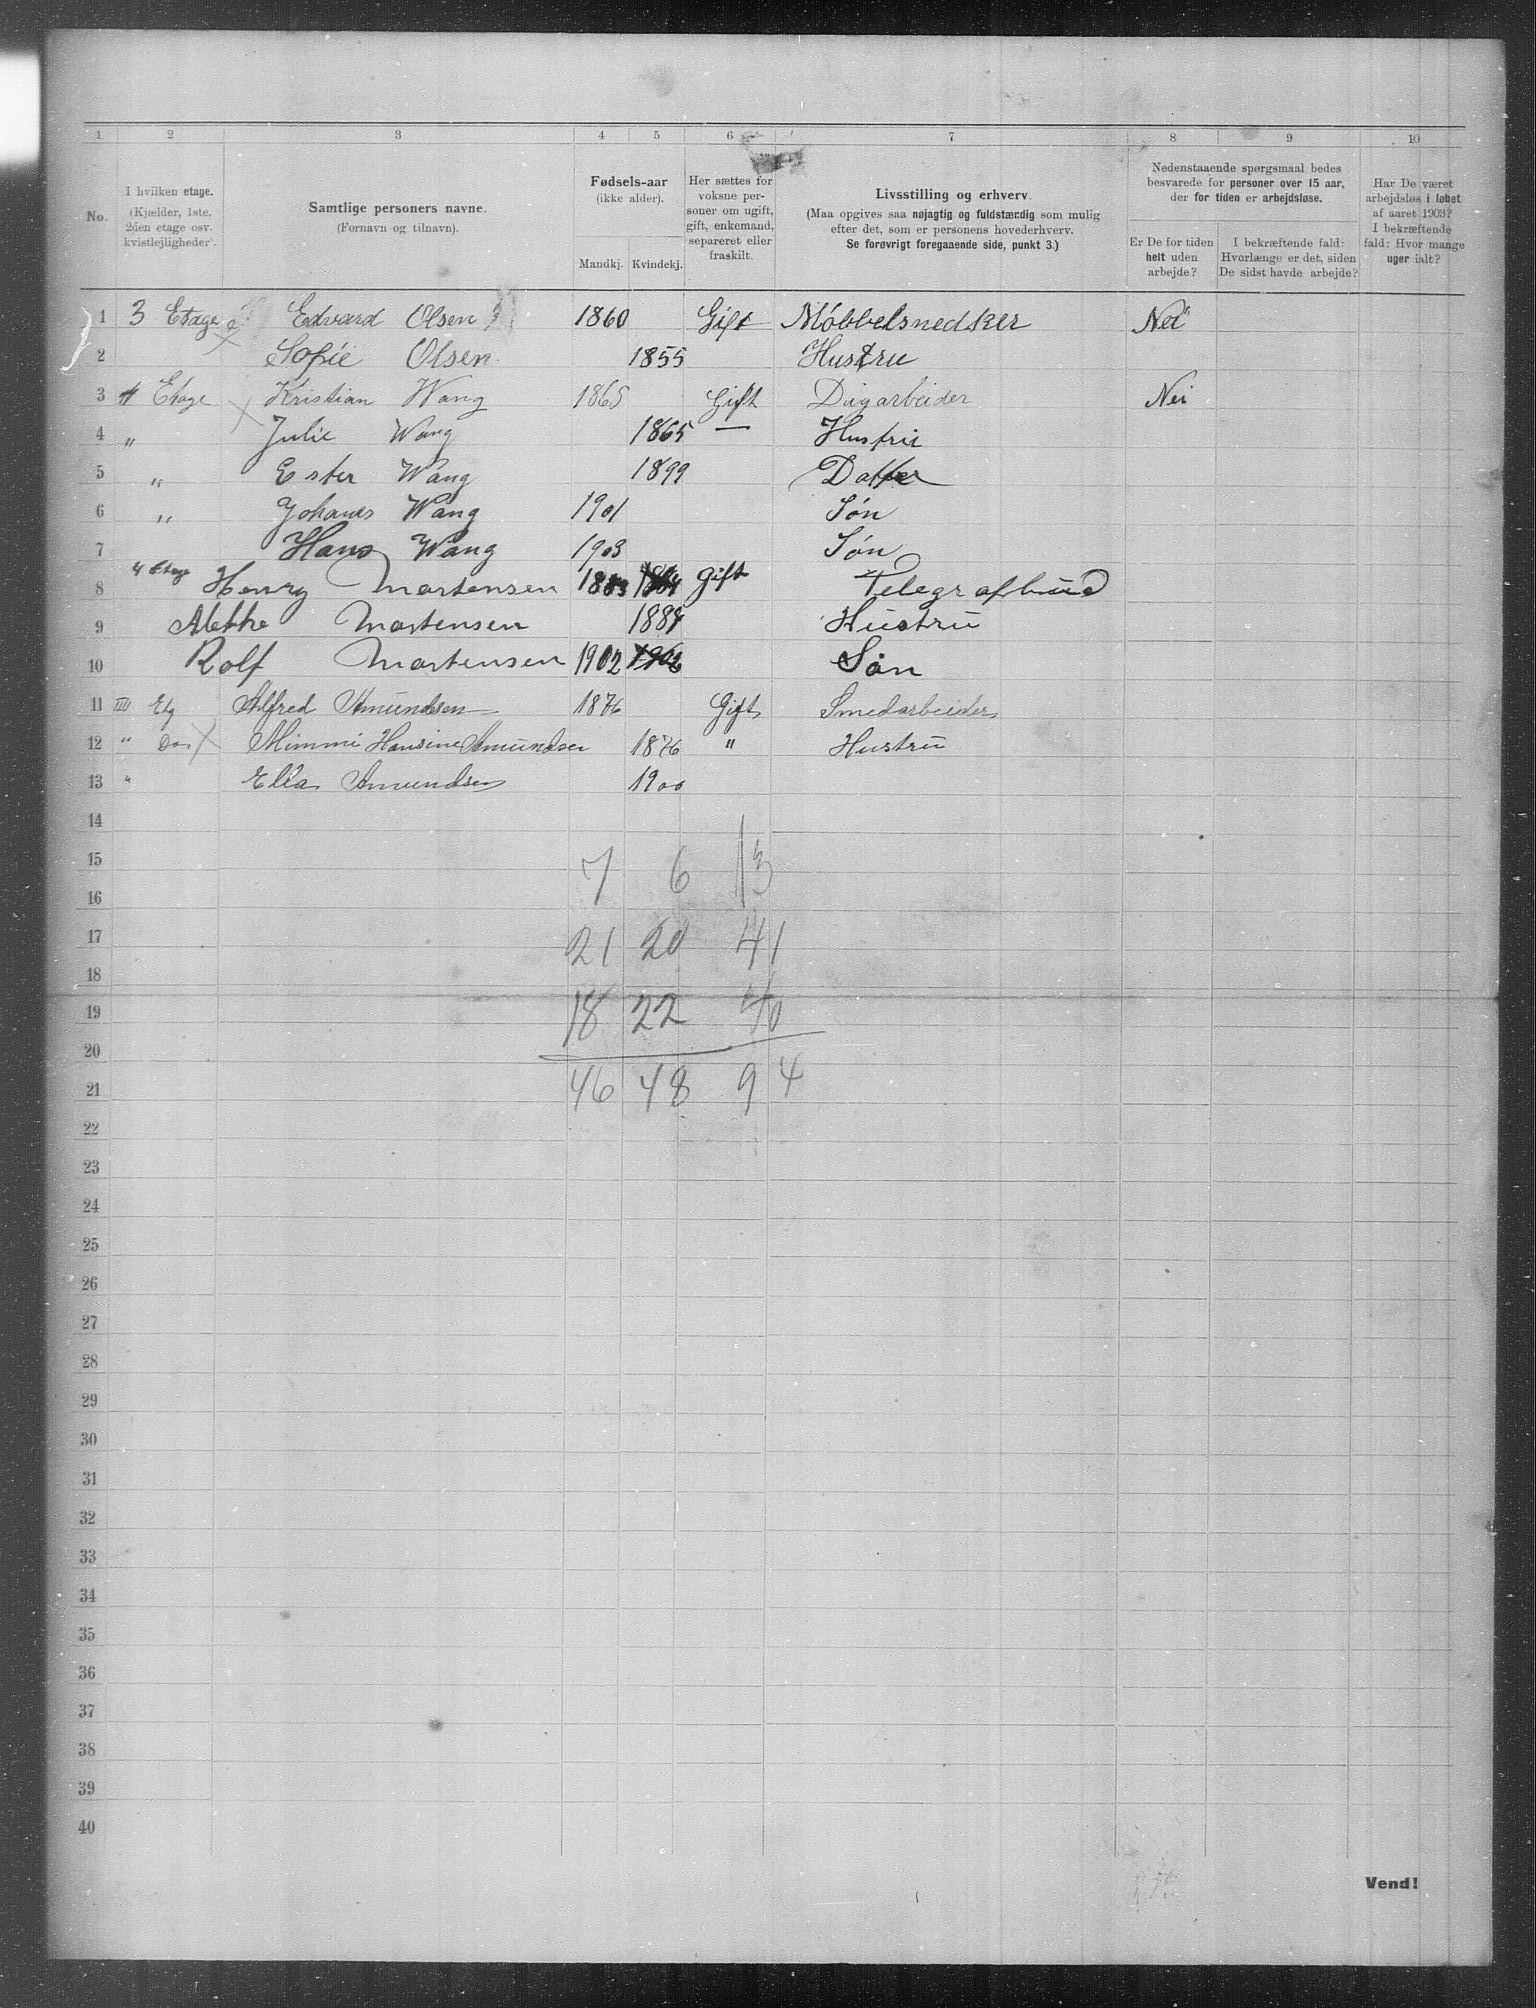 1 2 3 4 5 6 7 8 9 10
No.
I hvilken etage.
(Kjælder, 1ste, 2den etage osv. kvistlejligheder).
Samtlige personers navne.
(Fornavn og tilnavn).
Fødsels-aar
(ikke alder).
Mandkj. Kvindekj.
Her sættes for voksne personer om ugift, gift, enkemand, separeret eller fraskilt.
Livsstilling og erhverv.
(Maa opgives saa nøjagtig og fuldstændig som mulig
efter det, som er personens hovederhverv.
Se forøvrigt foregaaende side, punkt 3.)
Nedenstaaende spørgsmaal bedes
besvarede for personer over 15 aar,
der for tiden er arbejdsløse.
Er De for tiden helt uden arbejde?
I bekræftende fald: Hvorlænge er det, siden De sidst havde arbejde?
Har De været arbejdsløs i løbet af aaret 1903? I bekræftende fald: Hvor mange uger ialt?
1 3 Etage Edvard Olsen 1860 Gift Møbbelsnedker Nei
2 Sofie Olsen 1855 Hustru
3 4 Etage Kristian Wang 1865 Gift Dagarbeider Nei
4 " Julie Wang 1865 — Hustru
5 " Ester Wang 1899 Datter
6 " Johanes Wang 1901 Søn
7 Hans Wang 1903 Søn
8 4 Etage Henry Martensen 1883 Gift Telegrafbud
9 Mekke Martensen 1884 Hustru
10 Rolf Martensen 1902 1902 Søn
11 III Etg Alfred Amundsen 1876 Gift Smedarbeider
12 " Do Mimmi Hansine Amundsen 1876 " Hustru
13 " Ella Amundsen 1900
14
15 7 6 13
16
17 21 20 41
18
19 18 22 40
20
21 46 48 94
22
23
24
25
26
27
28
29
30
31
32
33
34
35
36
37
38
39
40
Vend!